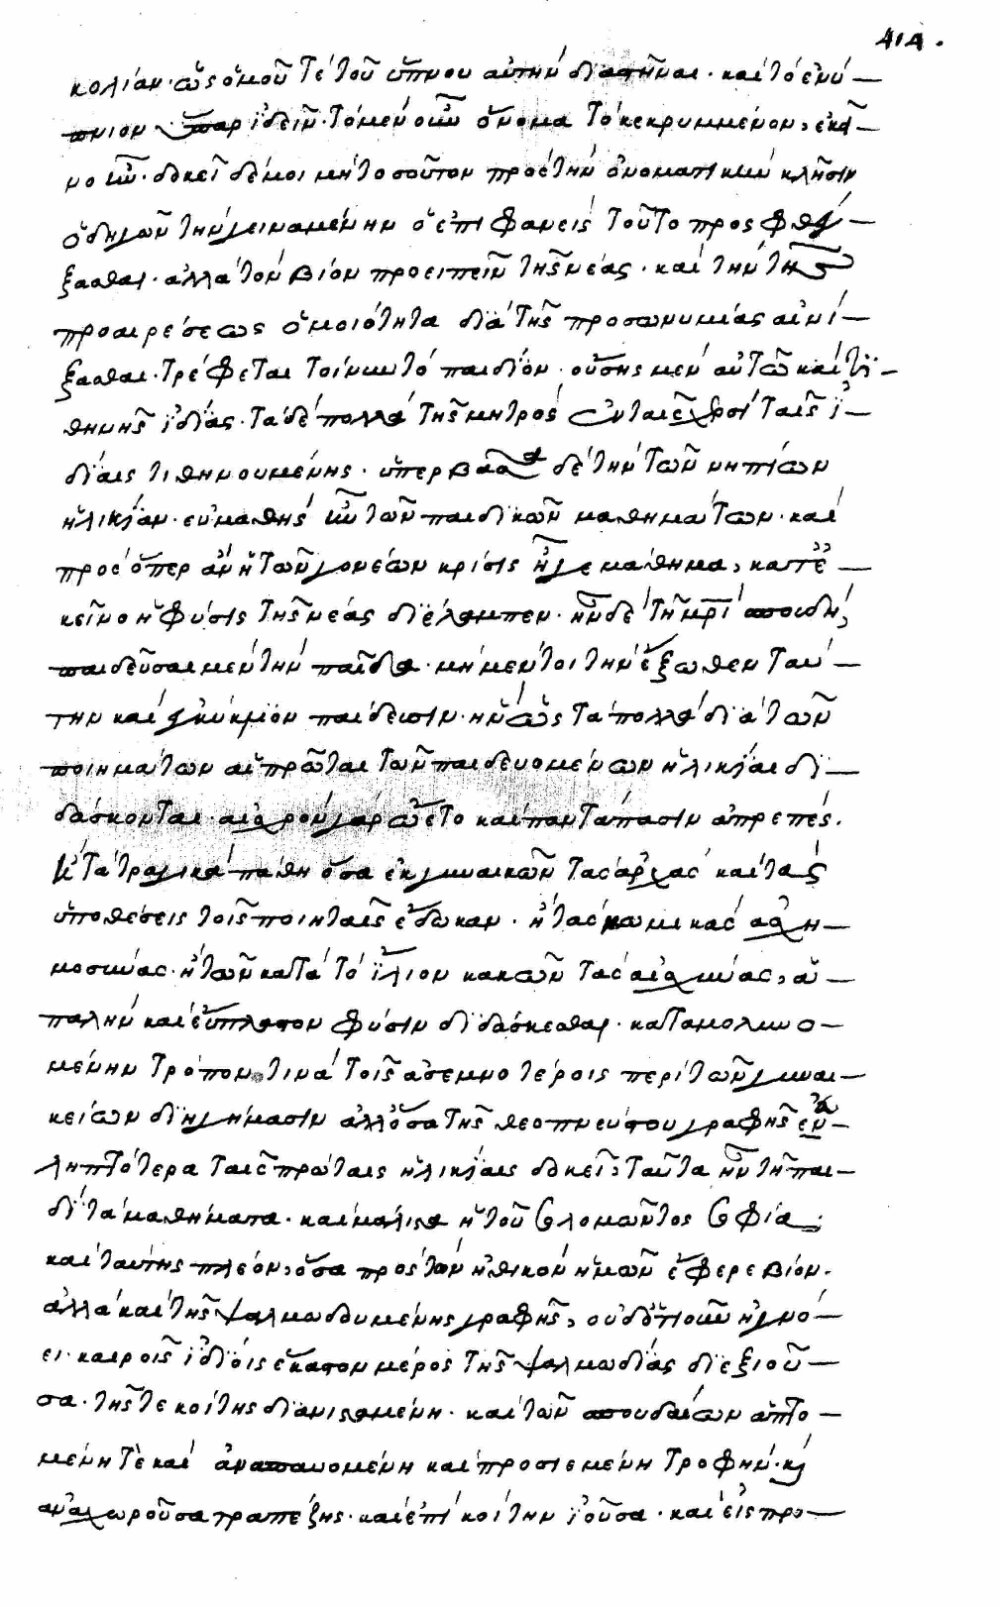 414.
κολίαν· ὡς ὁμοῦ τε τοῦ ὕπνου αὐτὴν διαστῆναι· καὶ τὸ ἐνύ—
πνιον ὕπαρ ἰδεῖν· τὸ μὲν οὖν ὄνομα τὸ κεκρυμμένον, ἐκεῖ—
νο ἦν· δοκεῖ δέ μοι μὴ τοσοῦτον πρὸς τὴν ὀνοματικὴν κλῆσιν
ὁδηγῶν τὴν γειναμένην ὁ ἐπιφανεὶς τοῦτο προσφθέγ—
ξασθαι· ἀλλὰ τὸν βίον προειπεῖν τῆς νέας· καὶ τὴν τῆς
προαιρέσεως ὁμοιότητα διὰ τῆς προσωνυμίας αἰνί—
ξασθαι· τρέφεται τοίνυν τὸ παιδίον· οὔσης μὲν αὐτῷ καὶ τι—
θηνῆς ἰδίας· τὰ δὲ πολλὰ τῆς μητρὸς ἐν ταῖς χερσὶ ταῖς ἰ—
δίαις τιθηνουμένης· ὑπερβᾶσα δὲ τὴν τῶν νηπίων
ἡλικίαν· εὐμαθὴς ἦν τῶν παιδικῶν μαθημάτων· καὶ
πρὸς ὅπερ ἂν ἡ τῶν γονέων κρίσις ἦγε μάθημα, κατ' ἐ—
κεῖνο ἡ φύσις τῆς νέας διέλαμπεν· ἦν δὲ τῇ μρὶ σπουδὴ,
παιδεῦσαι μὲν τὴν παῖδα· μὴ μέντοι τὴν ἔξωθεν ταύ—
την καὶ ἐγκύκλιον παίδευσιν· ἣν ὡς τὰ πολλὰ διὰ τῶν
ποιημάτων αἱ πρῶται τῶν παιδευομένων ἡλικίαι δι—
δάσκονται· αἰσχρὸν γὰρ ᾤετο καὶ παντάπασιν ἀπρεπές.
ἢ τὰ τραγικὰ πάθη ὅσα ἐκ γυναικῶν τὰς ἀρχὰς καὶ τὰς
ὑποθέσεις τοῖς ποιηταῖς ἔδωκαν· ἢ τὰς κωμικὰς ἀσχη—
μοσύνας· ἢ τῶν κατὰ τὸ ἴλιον κακῶν τὰς αἰσχύνας, ἁ—
παλὴν καὶ εὔπλαστον φύσιν διδάσκεσθαι· καταμολυνο—
μένην τρόπον τινὰ τοῖς ἀσεμνοτέροις περὶ τῶν γυναι—
κείων διηγήμασιν ἀλλ' ὅσα τῆς θεοπνεύστου γραφῆς εὐ—
ληπτότερα ταῖς πρώταις ἡλικίαις δοκεῖ, ταῦτα ἦν τῇ παι—
δὶ τὰ μαθήματα· καὶ μάλιστα ἡ τοῦ σολομῶντος σοφία·
καὶ ταύτης πλέον, ὅσα πρὸς τὸν ἠθικὸν ἡμῶν ἔφερε βίον.
ἀλλὰ καὶ τῆς ψαλμωδουμένης γραφῆς, οὐδ' ὁτιοῦν ἠγνό—
ει· καιροῖς ἰδίοις ἕκαστον μέρος τῆς ψαλμωδίας διεξιοῦ—
σα· τῆς τε κοίτης διανισταμένη· καὶ τῶν σπουδαίων ἁπτο—
μένη τὲ καὶ ἀναπαυομένη καὶ προσιεμένη τροφήν· καὶ
ἀναχωροῦσα τραπέζης· καὶ ἐπὶ κοίτην ἰοῦσα· καὶ εἰς προ—